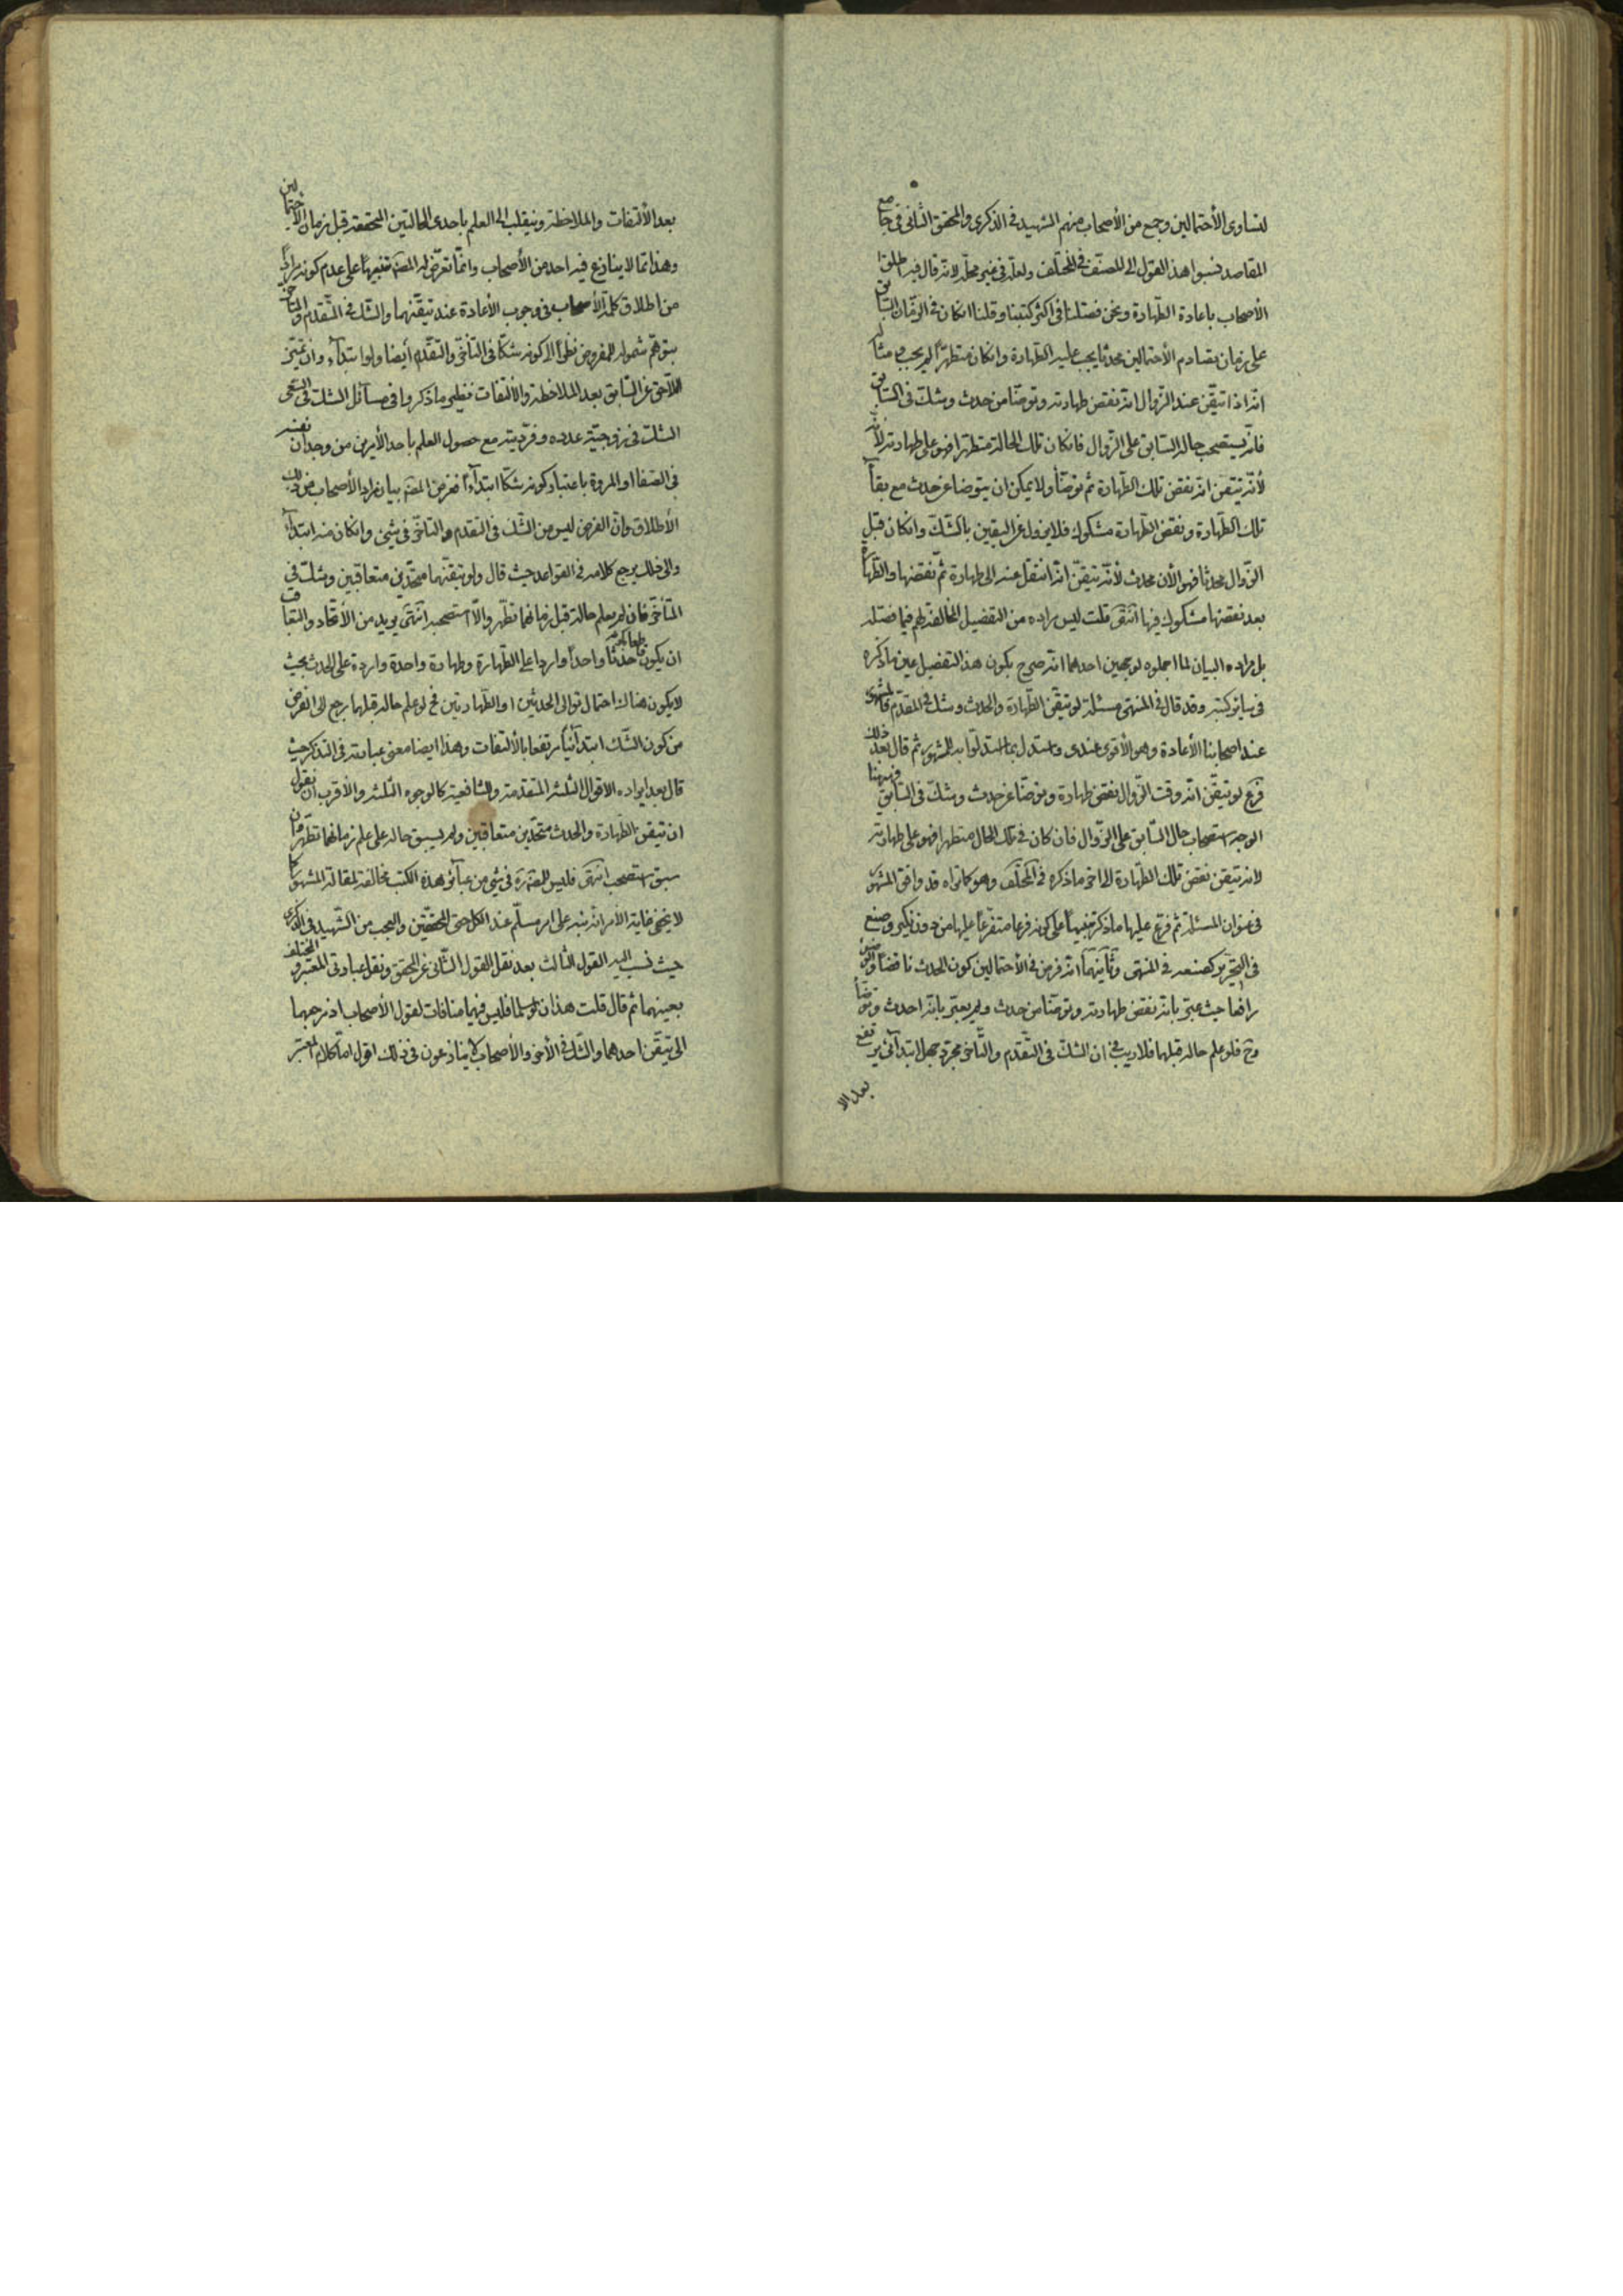 لتساوى الأحتمالين وجمع من الأصحاب منهم الشهيد فى الذكرى والمحقق الثانى فى جامع
المقاصد نسبوا هذا القول الى المصنّف فى المختلف ولعلّه فى غير محلّه لانه قال فيه اطلق
الأصحاب باعادة الطّهارة ونحن فصّلنا فى اكثر كتبنا وقلنا انكان فى الزمّان السّابق
على زمان تصادم الأحتمالين محدثا يجب عليه الطّهارة وانكان متطهّرا لم يجب مثاله
انّه اذا تيقّن عند الزّوال انّه نقض طهارته وتوضّأ من حدث وشكّ فى السّابق
فانّه يستصحب حاله السّابق على الزّوال فانكان تلك الحالة متطهّرا فهو على طهارته لأنّه
لأنّه تيقّن انّه نقض تلك الطّهارة ثم توضّأ ولا يمكن ان يتوضا عن حدث مع بقآء
تلك الطّهارة ونقض الطّهارة مشكوك فلا يزول عن اليقين بالشّكّ وانكان قبل
الزّوال محدثا فهو الأن محدث لأنّه تيقّن انّه انتقل عنه الى طهارة ثمّ نقضها والطّهارة
بعد نقضها مشكوك فيها انتهى قلت ليس مراده من التفصيل المخالفة لهم فيما فصّله
بل مراده البيان لما اجملوه لوجهين احدهما انّه صرح بكون هذا التفصيل عين ما ذكره
فى سائر كتبه وقد قال فى المنتهى مسئلة لو تيقّن الطّهارة والحدث وشك فى المقدّم فالمشهور
عند اصحابنا الأعادة وهو الأقوى عندى واستدل بما استدلّوا به للمشهور ثم قال بعد ذلك
فرع لو تيقّن انّه وقت الزّوال نقض طهارة وتوضّأ عن حدث وشكّ فى السّابق
الوجه استصحاب حال السّابق على الزّوال فان كان فى تلك الحال متطهرا فهو على طهارته
لانه تيقن نقض تلك الطّهارة الى اخر ما ذكره فى المختلف وهو كما تراه قد وافق المشهور
فى عنوان المسئلة ثم فرّع عليها ما ذكر تنبيهاً على كونه فرعا متفرّعاً عليها من دون نكير وصنع
فى التحرير كصنعه فى المنتهى وثانيهما انّه فرض فى الأحتمالين كون الحدث ناقضاً والوضوء
رافعا حيث عبّر بانّه نقض طهارته وتوضّأ من حدث ولم يعبّر بانّه احدث وتوضّأ
وح فلو علم حاله قبلها فلا ريب فى ان الشكّ فى التّقدم والتّاخر مجرّد جهل ابتدآئى يرتفع
بعد الا
بعد الألتفات والملاخظة وينقلب الى العلم باحدى الحالتين المحققة قبل زمان الاحتمالين
وهذا ممّا لا ينازع فيه احد من الأصحاب وانّما تعرّض له المصنّف تنبيهاً على عدم كونه مراداً
من اطلاق كلمة الأصحاب فى وجوب الأعادة عند تيقّنهما والشّك فى التّقدم والتاخر
بتوهّم شموله للمفروض نظراً الى كونه شكّا فى التأخّر والتّقدّم ايضا ولو ابتدآء وان تميّز
اللّاحق عن السّابق بعد الملاخظة والألتفات نظير ما ذكروا فى مسآئل الشّكّ فى السّعى
الشّكّ فى زوجيّة عدده وفرديّته مع حصول العلم باحد الأمرين من وجدان نفسه
فى الصّفا او المروة باعتبار كونه شكّا ابتدآءاً فغرض المصنّف بيان مراد الأصحاب من ذلك
الأطلاق وانّ الفرض ليس من الشّك فى التقدم والتاخّر فى شئ وانكان منه ابتدآء
والى ذلك يرجع كلامه فى القواعد حيث قال ولو تيقّنهما متحّدين متعاقبين وشكّ فى
المتأخّر فان لم يعلم حاله قبل زمانهما تطهّر والّا استصحبه انتهى يريد من الأتّحاد والتعاقب
ان يكون حدثا واحداً وارداً على الطّهارة وطهارة واحدة واردة على الحدث بحيث
لا يكون هناك احتمال توالى الحدثين او الطّهارتين فح لو علم حاله قبلهما يرجع الى الفرض
من كون الشّك ابتدآئيّاً يرتفع بالألتفات وهذا ايضا معنى عبارته فى التذكرة حيث
قال بعد ايراده الاقوال الثلثة المتقدمة والشافعية كالوجوه الثلثة والأقرب ان نقول
ان تيقن الطّهارة والحدث متّحدين متعاقبين ولم يسبق حاله على علم زمانهما تطهّر وان
سبق استصحب انتهى فليس للمصنّف ره فى شئ من عبآئر هذه الكتب مخالفة لمقالة المشهور كما
لا يخفى غاية الأمر انّه نبه على امر مسلّم عند الكل حتى المحقّقين والعجب من الشّهيد فى الذكرى
حيث نسب اليه القول الثالث بعد نقل القول الثّانى عن المحقق ونقل عبارتى المعتبر والمختلف
بعينهما ثم قال قلت هذان لو سلما فليس فيهما منافات لقول الأصحاب اذ مرجعهما
الى تيقّن احدهما والشّك فى الأخر والأصحاب لا ينازعون فى ذلك اقول امّا كلام المعتبر